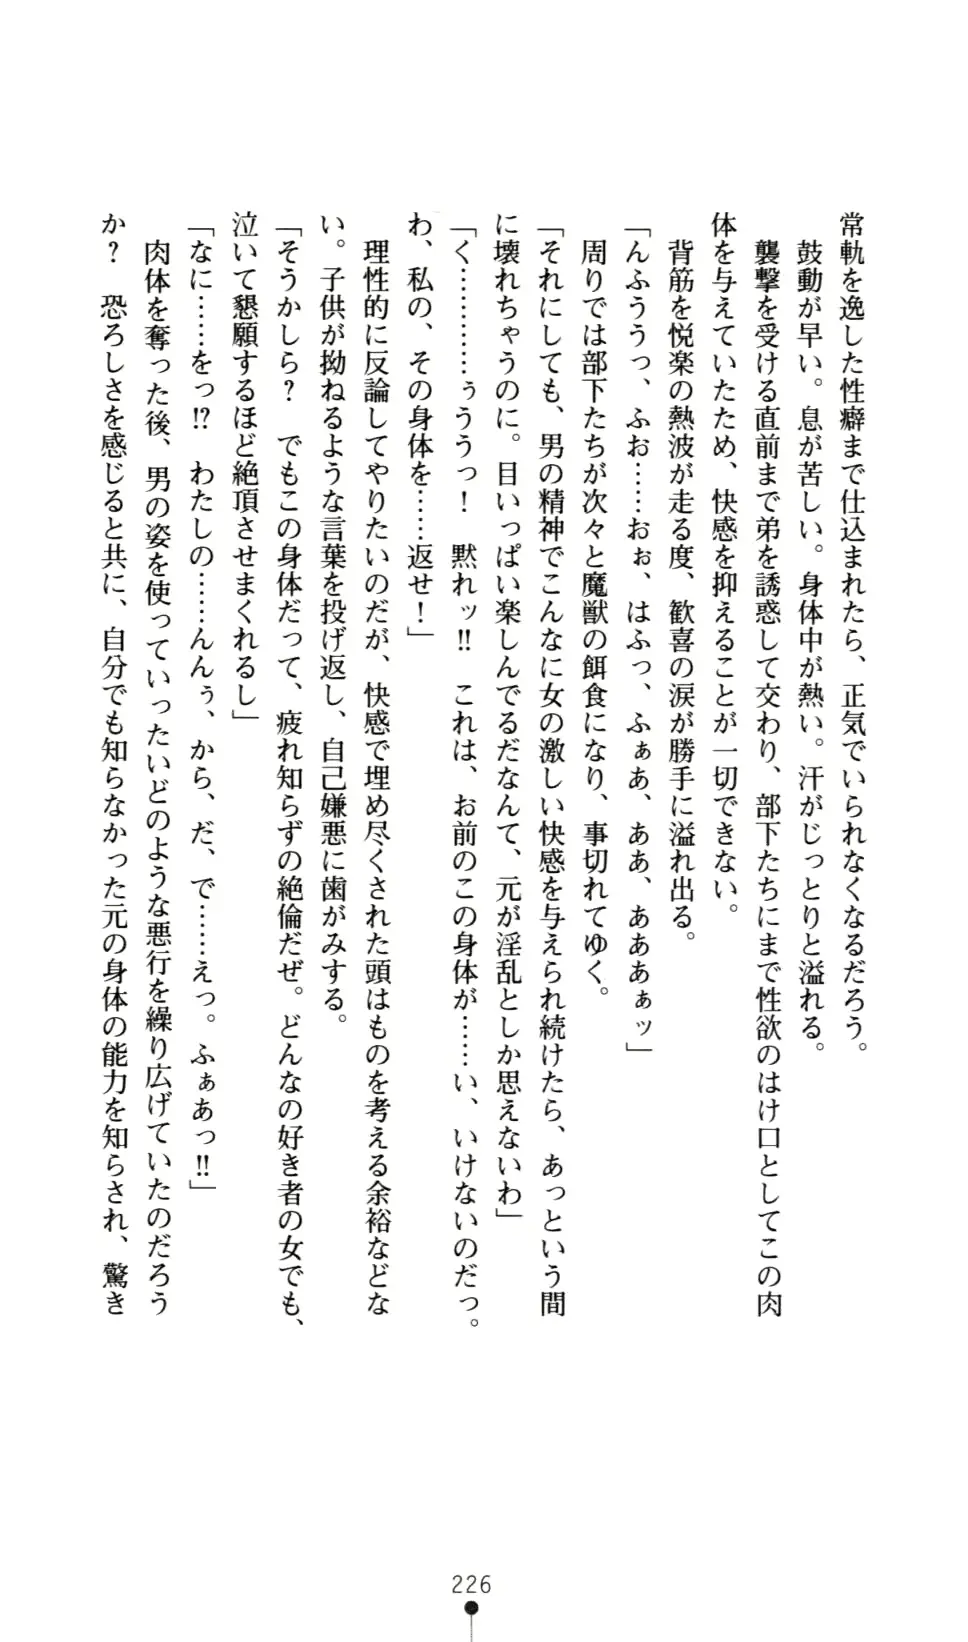 常軌を逸した性癖まで仕込まれたら、正気でいられなくなるだろう。
鼓動が早い。息が苦しい。身体中が熱い。汗がじっとりと溢れる。
襲撃を受ける直前まで弟を誘惑して交わり、部下たちにまで性欲のはけ口としてこの肉
体を与えていたため、快感を抑えることが一切できない。
背筋を悦楽の熱波が走る度、歓喜の涙が勝手に溢れ出る。
「んふううっ、ふお……おぉ、はふっ、ふぁあ、ああ、あああぁッ」
周りでは部下たちが次々と魔獣の餌食になり、事切れてゆく。
「それにしても、男の精神でこんなに女の激しい快感を与えられ続けたら、あっという間
に壊れちゃうのに。目いっぱい楽しんでるだなんて、元が淫乱としか思えないわ」
「く…………ぅううっ！　黙れッ!!　これは、お前のこの身体が……い、いけないのだっ。
わ、私の、その身体を……返せ！」
理性的に反論してやりたいのだが、快感で埋め尽くされた頭はものを考える余裕などな
い。子供が拗ねるような言葉を投げ返し、自己嫌悪に歯がみする。
「そうかしら？　でもこの身体だって、疲れ知らずの絶倫だぜ。どんなの好き者の女でも、
泣いて懇願するほど絶頂させまくれるし」
「なに……をっ!?　わたしの……んんぅ、から、だ、で……えっ。ふぁあっ!!」
肉体を奪った後、男の姿を使っていったいどのような悪行を繰り広げていたのだろう
か？　恐ろしさを感じると共に、自分でも知らなかった元の身体の能力を知らされ、驚き
226